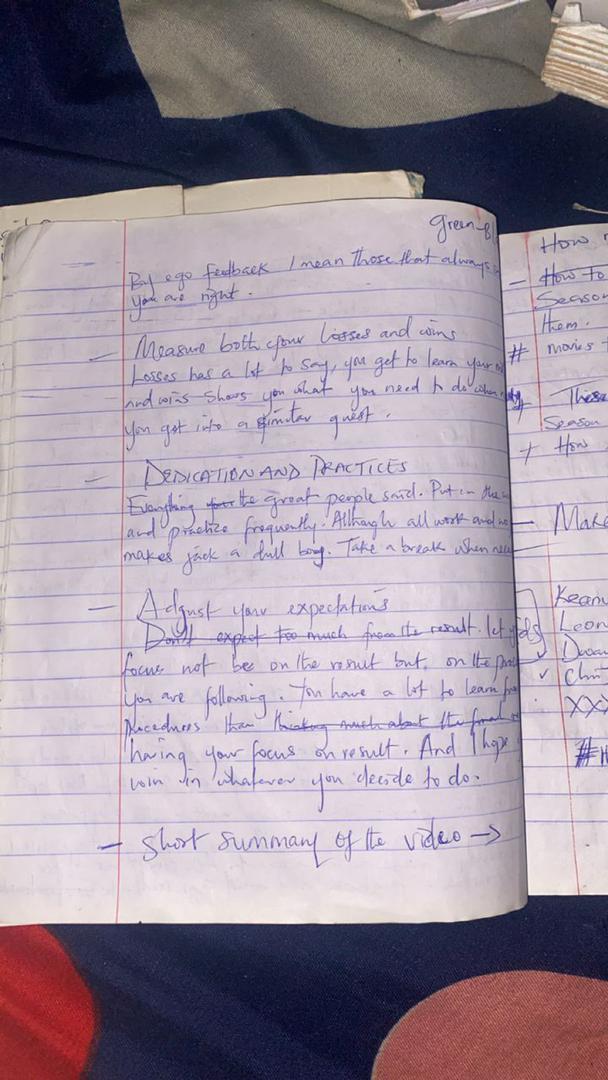 green-
By ego feedback I mean those that always
you are right.
- Measure both your losses and wins
Losses has a lot to say, you get to learn your
and wins shows you what you need to do when
you get into a similar quest.
- DEDICATION AND PRACTICES
Everything the great people said. Put in the
and practice frequently. Although all work and no
makes jack a dull boy. Take a break when
- Adjust your expectations
Don't expect too much from the result. let
focus not be on the result but, on the
you are following. You have a lot to learn from
procedures than thinking much about the
having your focus on result. And I hope
win in whatever you decide to do.
- Short summary of the video →
How
- How to
Season
them.
# movies
These
Season
+ How
Make
Keanu
Leon
XXX
#